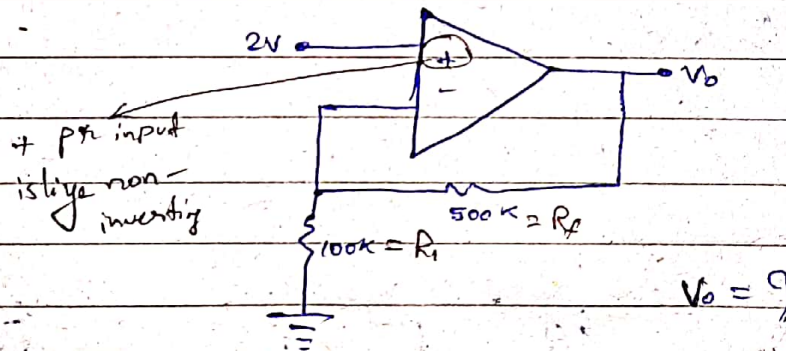 2V
+
-
Vo
+ pr input
isliye non-
inverting
500K = Rf
100K = R1
Vo = ?